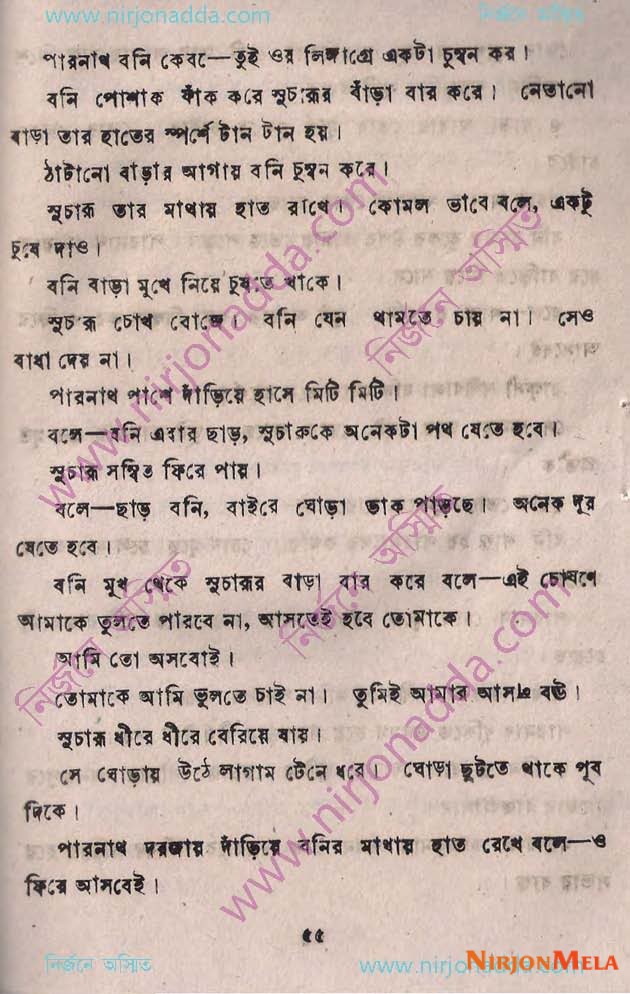 www.nirjonadda.com নির্জনে অস্মিত
পারনাথ বনি কেবলে—তুই ওর লিঙ্গাগ্রে একটা চুম্বন কর।
বনি পোশাক ফাঁক করে সুচারুর বাঁড়া বার করে। নেতানো
বাড়া তার হাতের স্পর্শে টান টান হয়।
ঠাটানো বাড়ার আগায় বনি চুম্বন করে।
সুচারু তার মাথায় হাত রাখে। কোমল ভাবে বলে, একটু
চুষে দাও।
বনি বাড়া মুখে নিয়ে চুষতে থাকে।
সুচারু চোখ বোজে। বনি যেন থামতে চায় না। সেও
বাধা দেয় না।
পারনাথ পাশে দাঁড়িয়ে হাসে মিটি মিটি।
বলে—বনি এবার ছাড়, সুচারুকে অনেকটা পথ যেতে হবে।
সুচারু সম্বিত ফিরে পায়।
বলে—ছাড় বনি, বাইরে ঘোড়া ডাক পাড়ছে। অনেক দূর
যেতে হবে।
বনি মুখ থেকে সুচারুর বাড়া বার করে বলে—এই চোষণে
আমাকে ভুলতে পারবে না, আসতেই হবে তোমাকে।
আমি তো অসবোই।
তোমাকে আমি ভুলতে চাই না। তুমিই আমার আসল বউ।
সুচারু ধীরে ধীরে বেরিয়ে যায়।
সে ঘোড়ায় উঠে লাগাম টেনে ধরে। ঘোড়া ছুটতে থাকে পূব
দিকে।
পারনাথ দরজায় দাঁড়িয়ে বনির মাথায় হাত রেখে বলে—ও
ফিরে আসবেই।
৫৫
নির্জনে অস্মিত www.nirjonadda.com
NIRJONMELA